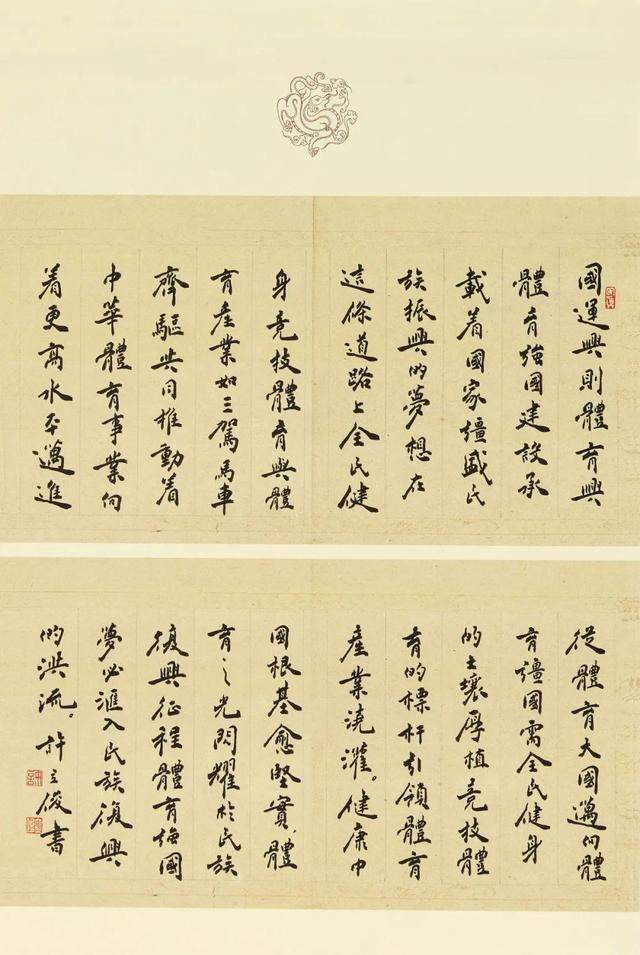 國運興則體育興
體育強國建設承
載着國家彊盛民
族振興的夢想在
這條道路上全民健
身竞技體育與體
育產業如三駕馬車
齊驅共同推動着
中華體育事業向
着更高水平邁進
從體育大國邁向體
育彊國需全民健身
的土壤厚植竞技體
育的標杆引領體育
產業澆灌。健康中
國根基愈堅實、體
育之光閃耀於民族
復興征程體育強國
夢必滙入民族復興
的洪流。許立俊書